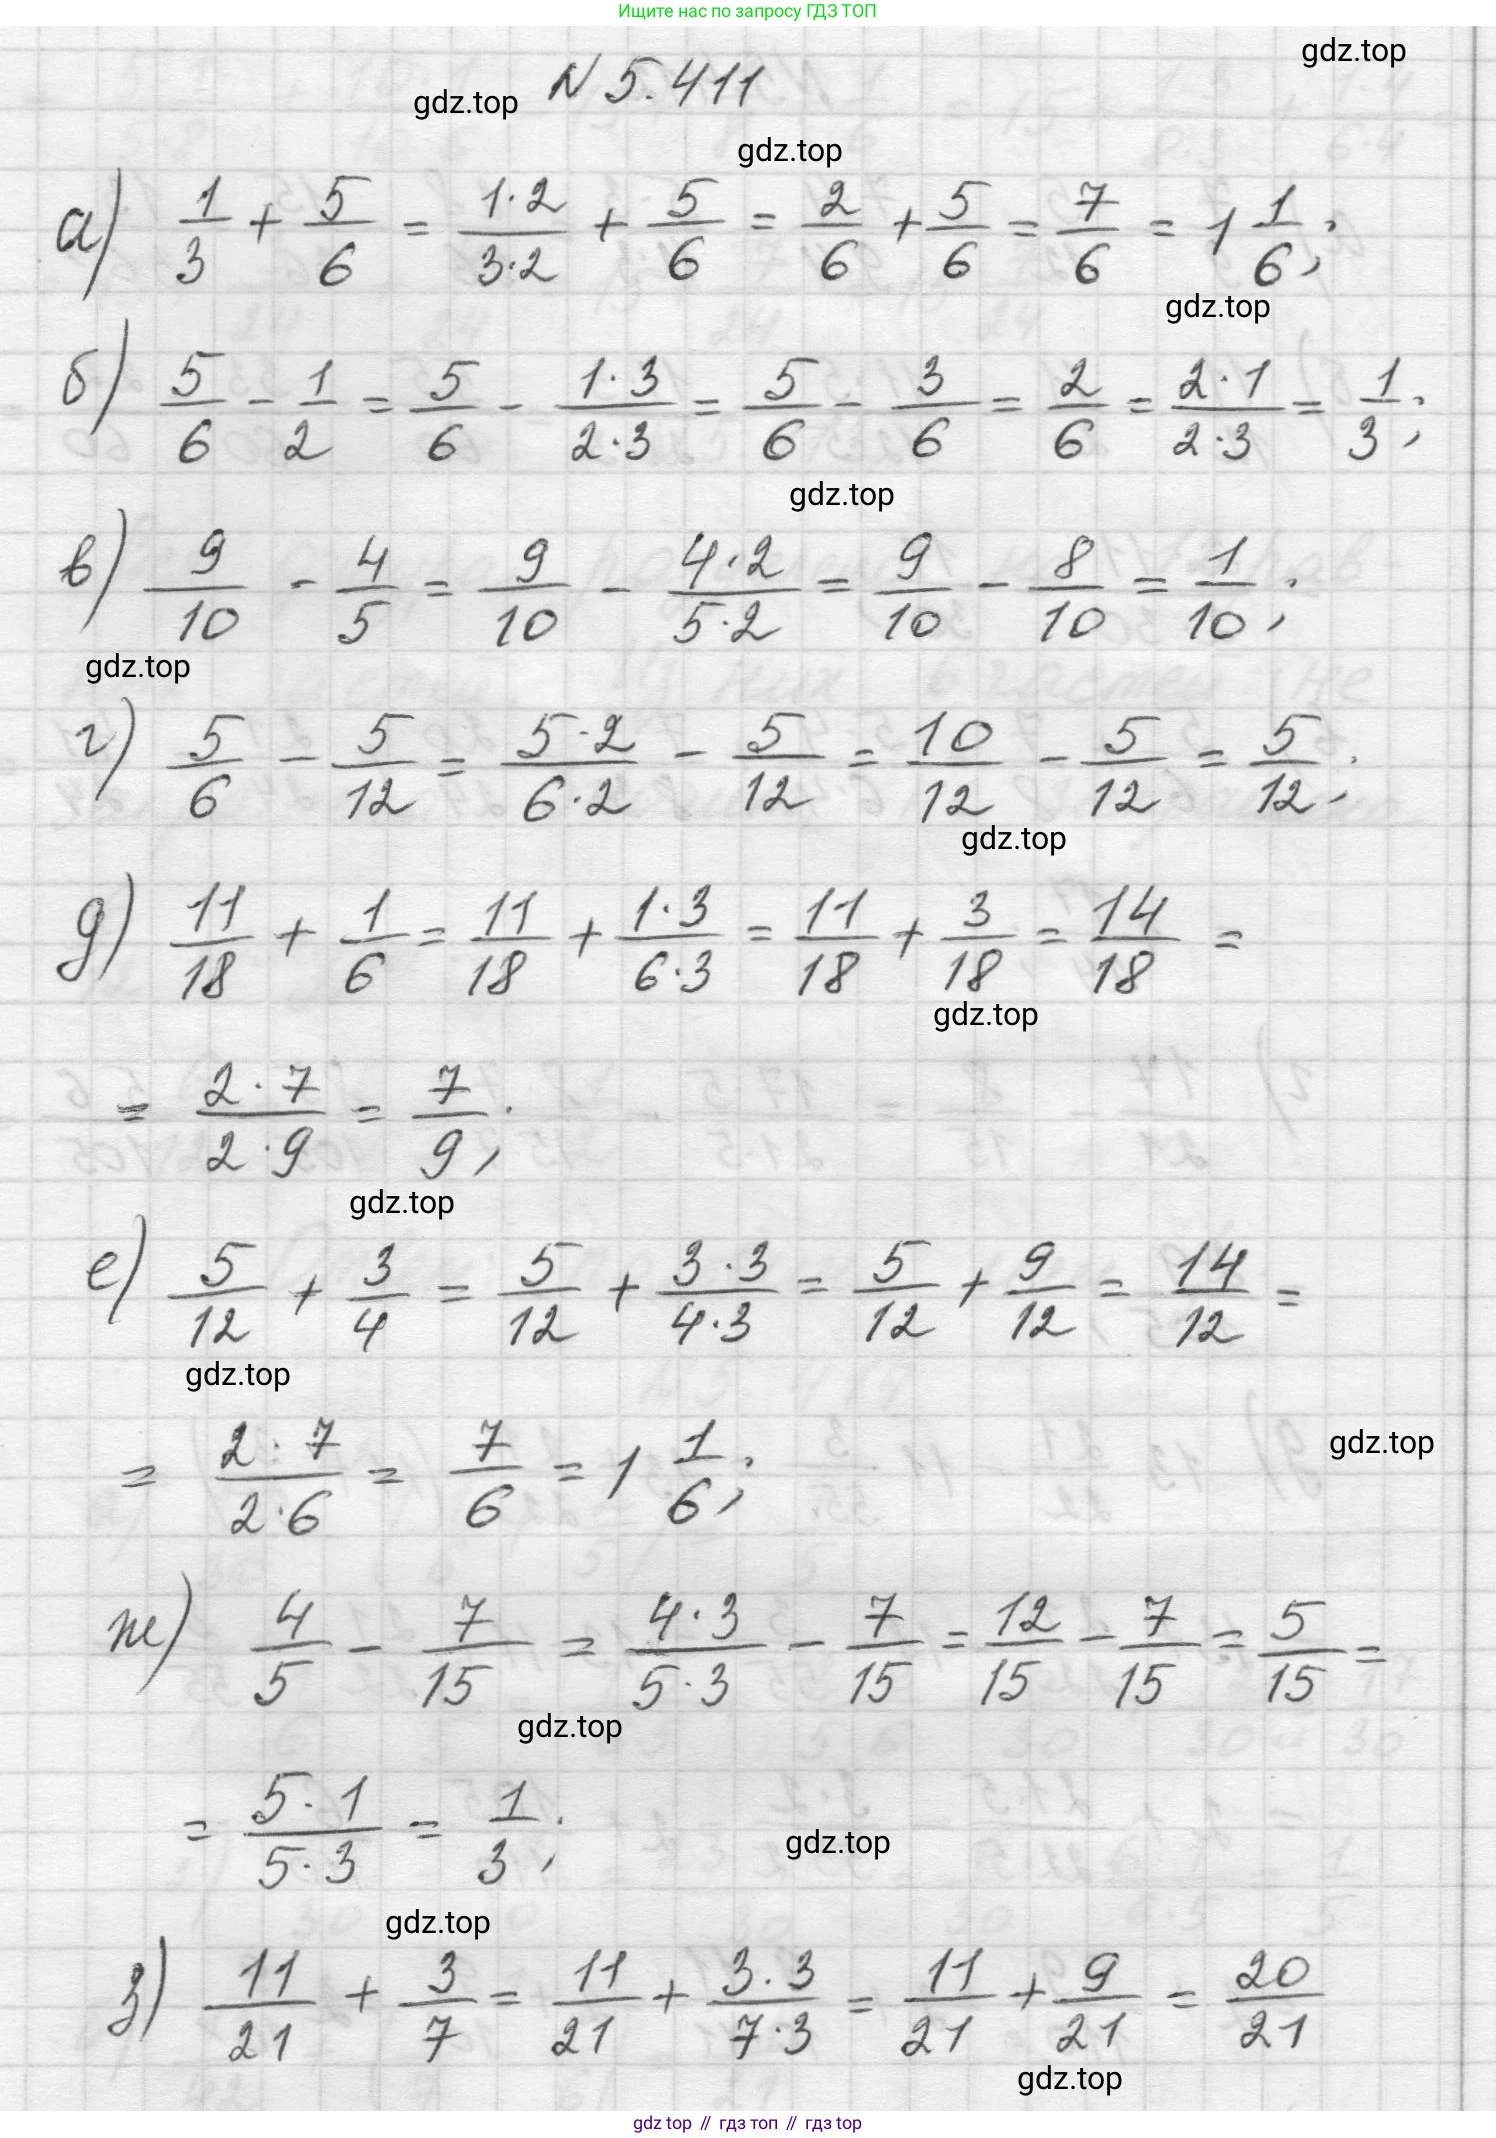 Ищите нас по запросу ГДЗ ТОП
gdz.top
N 5.411
gdz.top
gdz.top
а) 1/3 + 5/6 = 1·2/3·2 + 5/6 = 2/6 + 5/6 = 7/6 = 1 1/6;
gdz.top
б) 5/6 - 1/2 = 5/6 - 1·3/2·3 = 5/6 - 3/6 = 2/6 = 2·1/2·3 = 1/3;
gdz.top
в) 9/10 - 4/5 = 9/10 - 4·2/5·2 = 9/10 - 8/10 = 1/10;
gdz.top
г) 5/6 - 5/12 = 5·2/6·2 - 5/12 = 10/12 - 5/12 = 5/12;
gdz.top
д) 11/18 + 1/6 = 11/18 + 1·3/6·3 = 11/18 + 3/18 = 14/18 =
gdz.top
= 2·7/2·9 = 7/9;
gdz.top
е) 5/12 + 3/4 = 5/12 + 3·3/4·3 = 5/12 + 9/12 = 14/12 =
gdz.top
= 2·7/2·6 = 7/6 = 1 1/6;
gdz.top
ж) 4/5 - 7/15 = 4·3/5·3 - 7/15 = 12/15 - 7/15 = 5/15 =
gdz.top
= 5·1/5·3 = 1/3;
gdz.top
gdz.top
з) 11/21 + 3/7 = 11/21 + 3·3/7·3 = 11/21 + 9/21 = 20/21
gdz.top
gdz top // гдз топ // гдз top